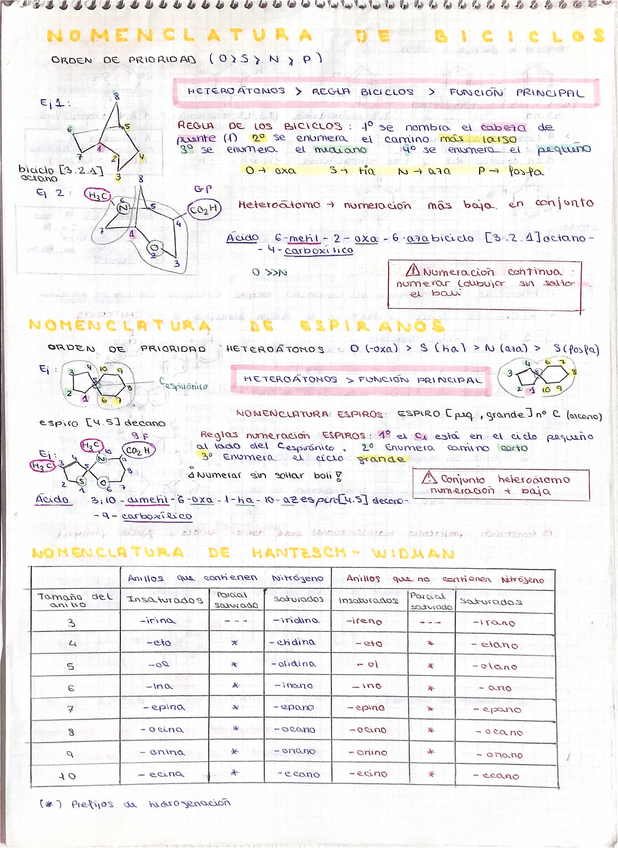 NOMENCLATURA DE BICICLOS
ORDEN DE PRIORIDAD (O > S > N > P)
HETEROÁTONOS > REGLA BICICLOS > FUNCIÓN PRINCIPAL
Ej 1:
8
6
5
7
1
2
4
3
biciclo [3.2.1]
octano
REGLA DE LOS BICICLOS: 1º se nombra el cabeza de
puente (1) 2º se enumera el camino más largo
3º se enumera el mediano 4º se enumera el pequeño
O → oxa S → tia N → aza P → fosfa
Ej 2:
8
H3C
N
6
5
4
CO2H
GP
7
1
O
2
3
Heteroátomo → numeración más baja en conjunto
Ácido 6-metil-2-oxa-6-azabiciclo [3.2.1]octano-
-4-carboxílico
O >> N
⚠ Numeración continua:
numerar (dibujar sin soltar
el boli
NOMENCLATURA DE ESPIRANOS
ORDEN DE PRIORIDAD HETEROÁTOMOS: O (-oxa) > S (tia) > N (aza) > S (fosfa)
Ej:
3 4 10 9
2 5 8
1 6 7
Cespiránico
3 4 6 7
2 5 8
1 10 9
HETEROÁTONOS > FUNCIÓN PRINCIPAL
espiro [4.5] decano
NOMENCLATURA ESPIROS: ESPIRO [peq, grande] nº C (alcano)
Reglas numeración ESPIROS: 1º el C1 está en el ciclo pequeño
al lado del Cespiránico. 2º Enumera camino corto
3º Enumera el ciclo grande
¡Numerar sin soltar boli!
⚠ Conjunto heteroátomo
numeración + baja
Ej:
H3C
H3C
G.F
CO2H
N
10
9
3 4
2 5 8
S
1
O
6 7
Ácido 3,10-dimetil-6-oxa-1-tia-10-azaespiro[4.5] decano-
-9-carboxílico
NOMENCLATURA DE HANTZSCH-WIDMAN
Anillos que contienen Nitrógeno Anillos que no contienen Nitrógeno
Tamaño del anillo Insaturados Parcial saturado saturados Insaturados Parcial saturado saturados
3 -irina --- -iridina -ireno --- -irano
4 -eto * -etidina -eto * -etano
5 -ol * -olidina -ol * -olano
6 -ina * -inano -ino * -ano
7 -epina * -epano -epino * -epano
8 -ocina * -ocano -ocino * -ocano
9 -onina * -onano -onino * -onano
10 -ecina * -ecano -ecino * -ecano
(*) Prefijos de hidrogenación